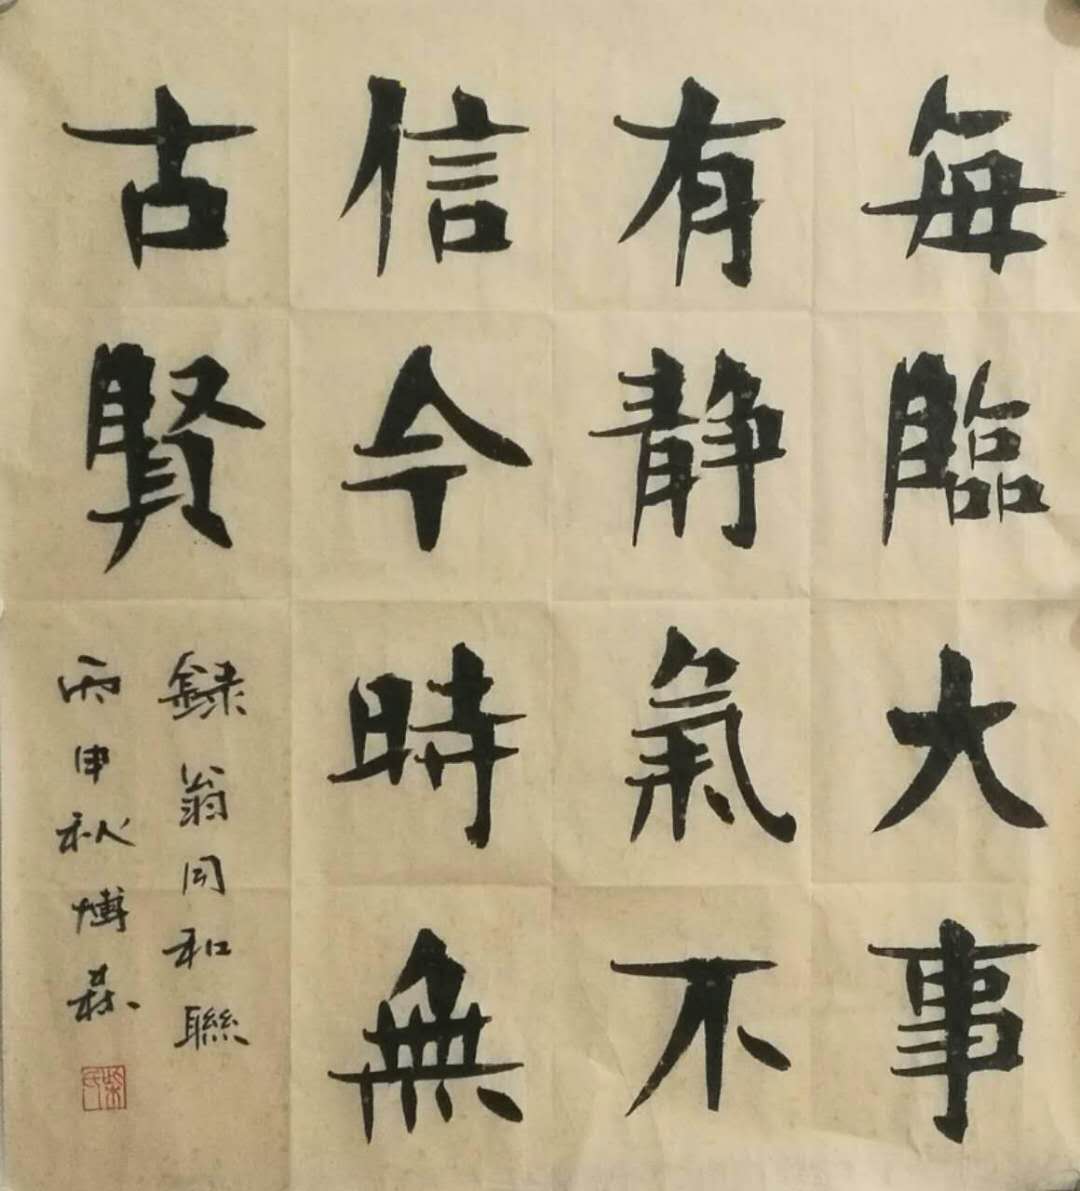 每臨大事
有静氣不
信今時無
古賢
録翁同和聯
丙申秋博森